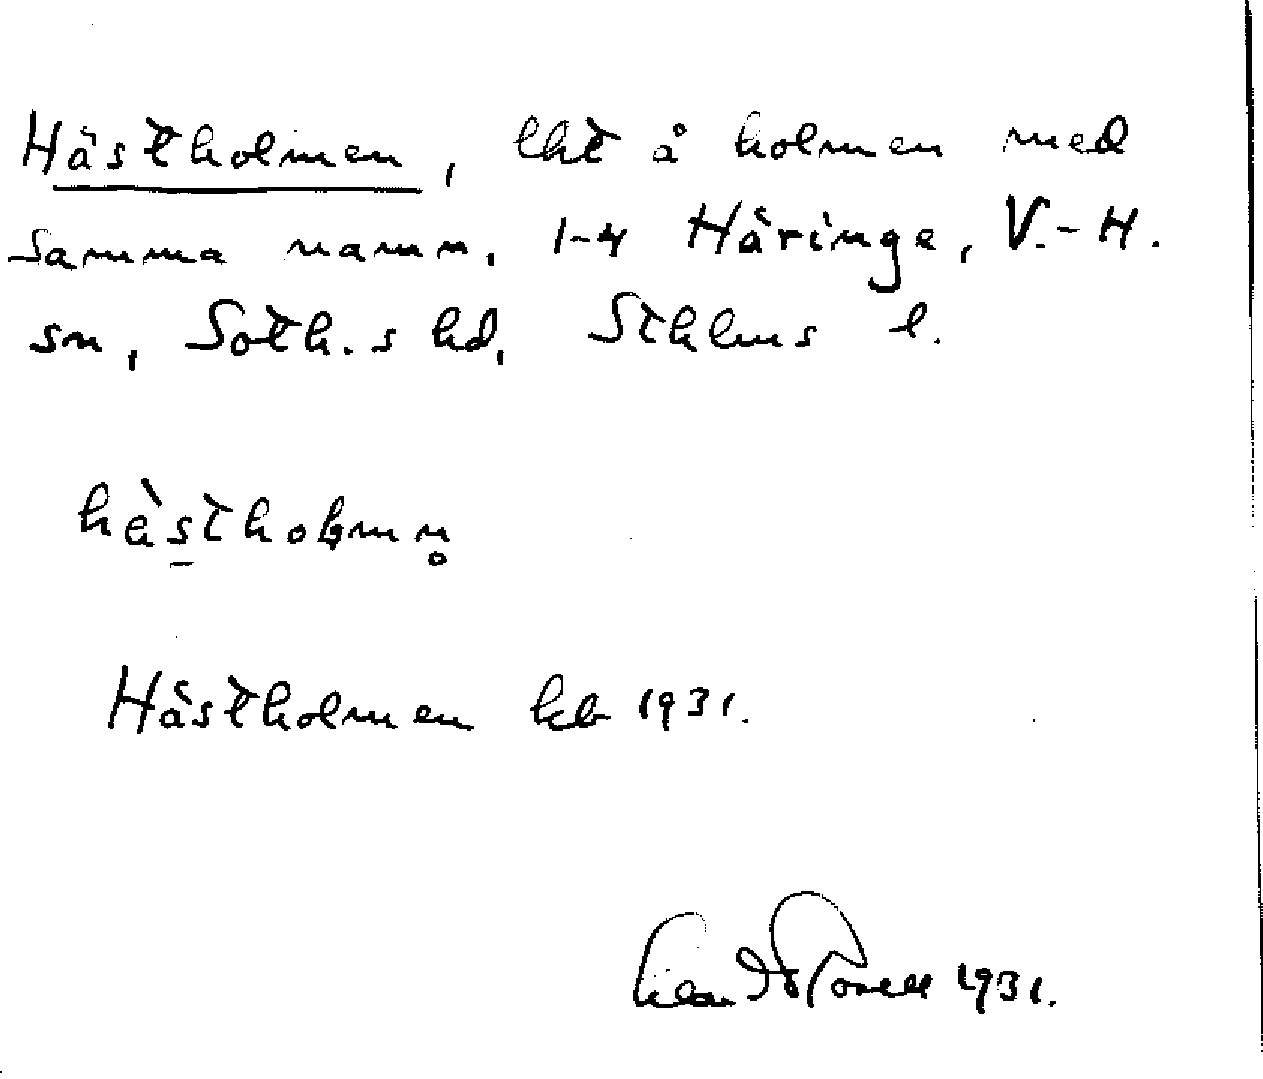 Hästholmen, lht å holmen med
samma namn, 1-4 Häringe, V.-H.
sn, Soth.s hd, Sthlms l.
hèstholmn̥
Hästholmen kb 1931.
1931.